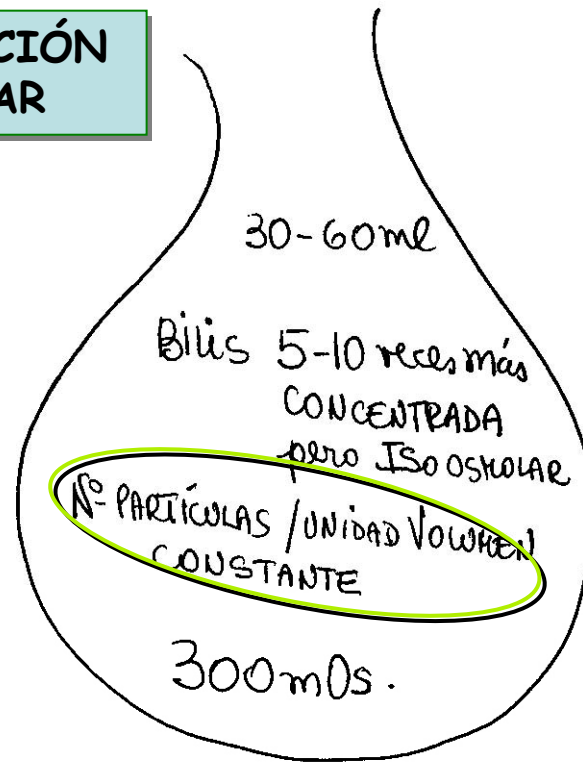 CIÓN
AR
30-60ml
Bilis 5-10 veces más
CONCENTRADA
pero ISOOSMOLAR
Nº PARTÍCULAS / UNIDAD VOLUMEN
CONSTANTE
300mOs.